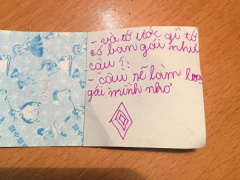 - và tớ ước gì tớ
có bạn gái như
cậu !:
- cậu sẽ làm
gái mình nhớ